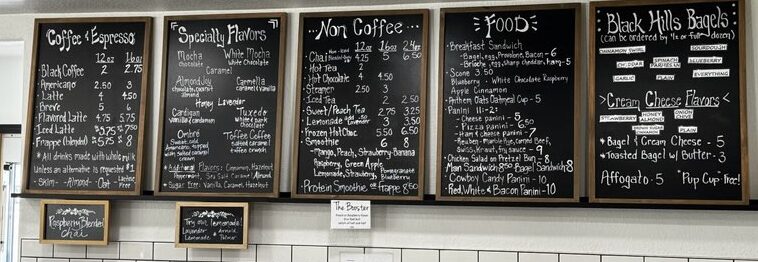 Coffee & Espresso
12oz 16oz
Black Coffee 2 2.75
Americano 2.50 3
Latte 4 4.50
Breve 6
Flavored Latte 4.75 5.75
Iced Latte
Frappe (blended) 8
*All drinks made with whole milk
unless an alternative is requested $1
Skim - Almond - Oat Lactose Free
Raspberry Blended
Chai
Specialty Flavors
Mocha
chocolate
White Mocha
white chocolate
Caramel
Almond Joy
chocolate, coconut
almond
Carmella
caramel vanilla
Honey Lavender
Cardigan
vanilla cinnamon
Tuxedo
white & dark
chocolate
Ombré
Toffee Coffee
caramel almond
Additional Flavors: Cinnamon, Hazelnut
Peppermint, Sea Salt Caramel, Almond
Sugar Free: Vanilla, Caramel, Hazelnut
Try our lemonade!
Lavender Arnold
Lemonade Palmer
Non Coffee
12oz 16oz 24oz
Chai 4.25 5 6.50
Hot Tea 2
Hot Chocolate 4 4.50
Steamer 2.50 3
Iced Tea 2 2.50
Sweet/Peach Tea 2.75 3.25
Lemonade 3 3.50
Frozen Hot Choc 5.50 6.50
Smoothie 6 8
Mango, Peach, Strawberry-Banana
Raspberry, Green Apple
Lemonade, Strawberry, Pomegranate
Blueberry
Protein Smoothie or Frappe 8.50
The Booster
FOOD
Breakfast Sandwich
Bagel, egg, Provolone, Bacon - 6
Bagel, egg, sharp cheddar, ham - 5
Scone 3.50
Blueberry - White Chocolate Raspberry
Apple Cinnamon
Anthem Oats Oatmeal Cup - 5
Panini 11-2:
Cheese panini - 5
Pizza panini - 6.50
Ham & cheese panini - 7
Reuben - marble rye, corned beef,
Swiss, kraut, fry sauce - 9
Chicken Salad on Pretzel Bun - 8
Mam Sandwich 8.50 Bagel Sandwich 8
Cowboy Candy Panini - 10
Red, White & Bacon Panini - 10
Black Hills Bagels
(Can be ordered by ½ or full dozen)
CINNAMON SWIRL
SOURDOUGH
CHEDDAR
SPINACH PARMESAN
BLUEBERRY
GARLIC
PLAIN
EVERYTHING
> Cream Cheese Flavors <
STRAWBERRY
HONEY ALMOND
ONION CHIVE
BROWN SUGAR CINNAMON
PLAIN
* Bagel & Cream Cheese - 5
* Toasted Bagel w/ Butter - 3
Affogato - 5 "Pup Cup" Free!